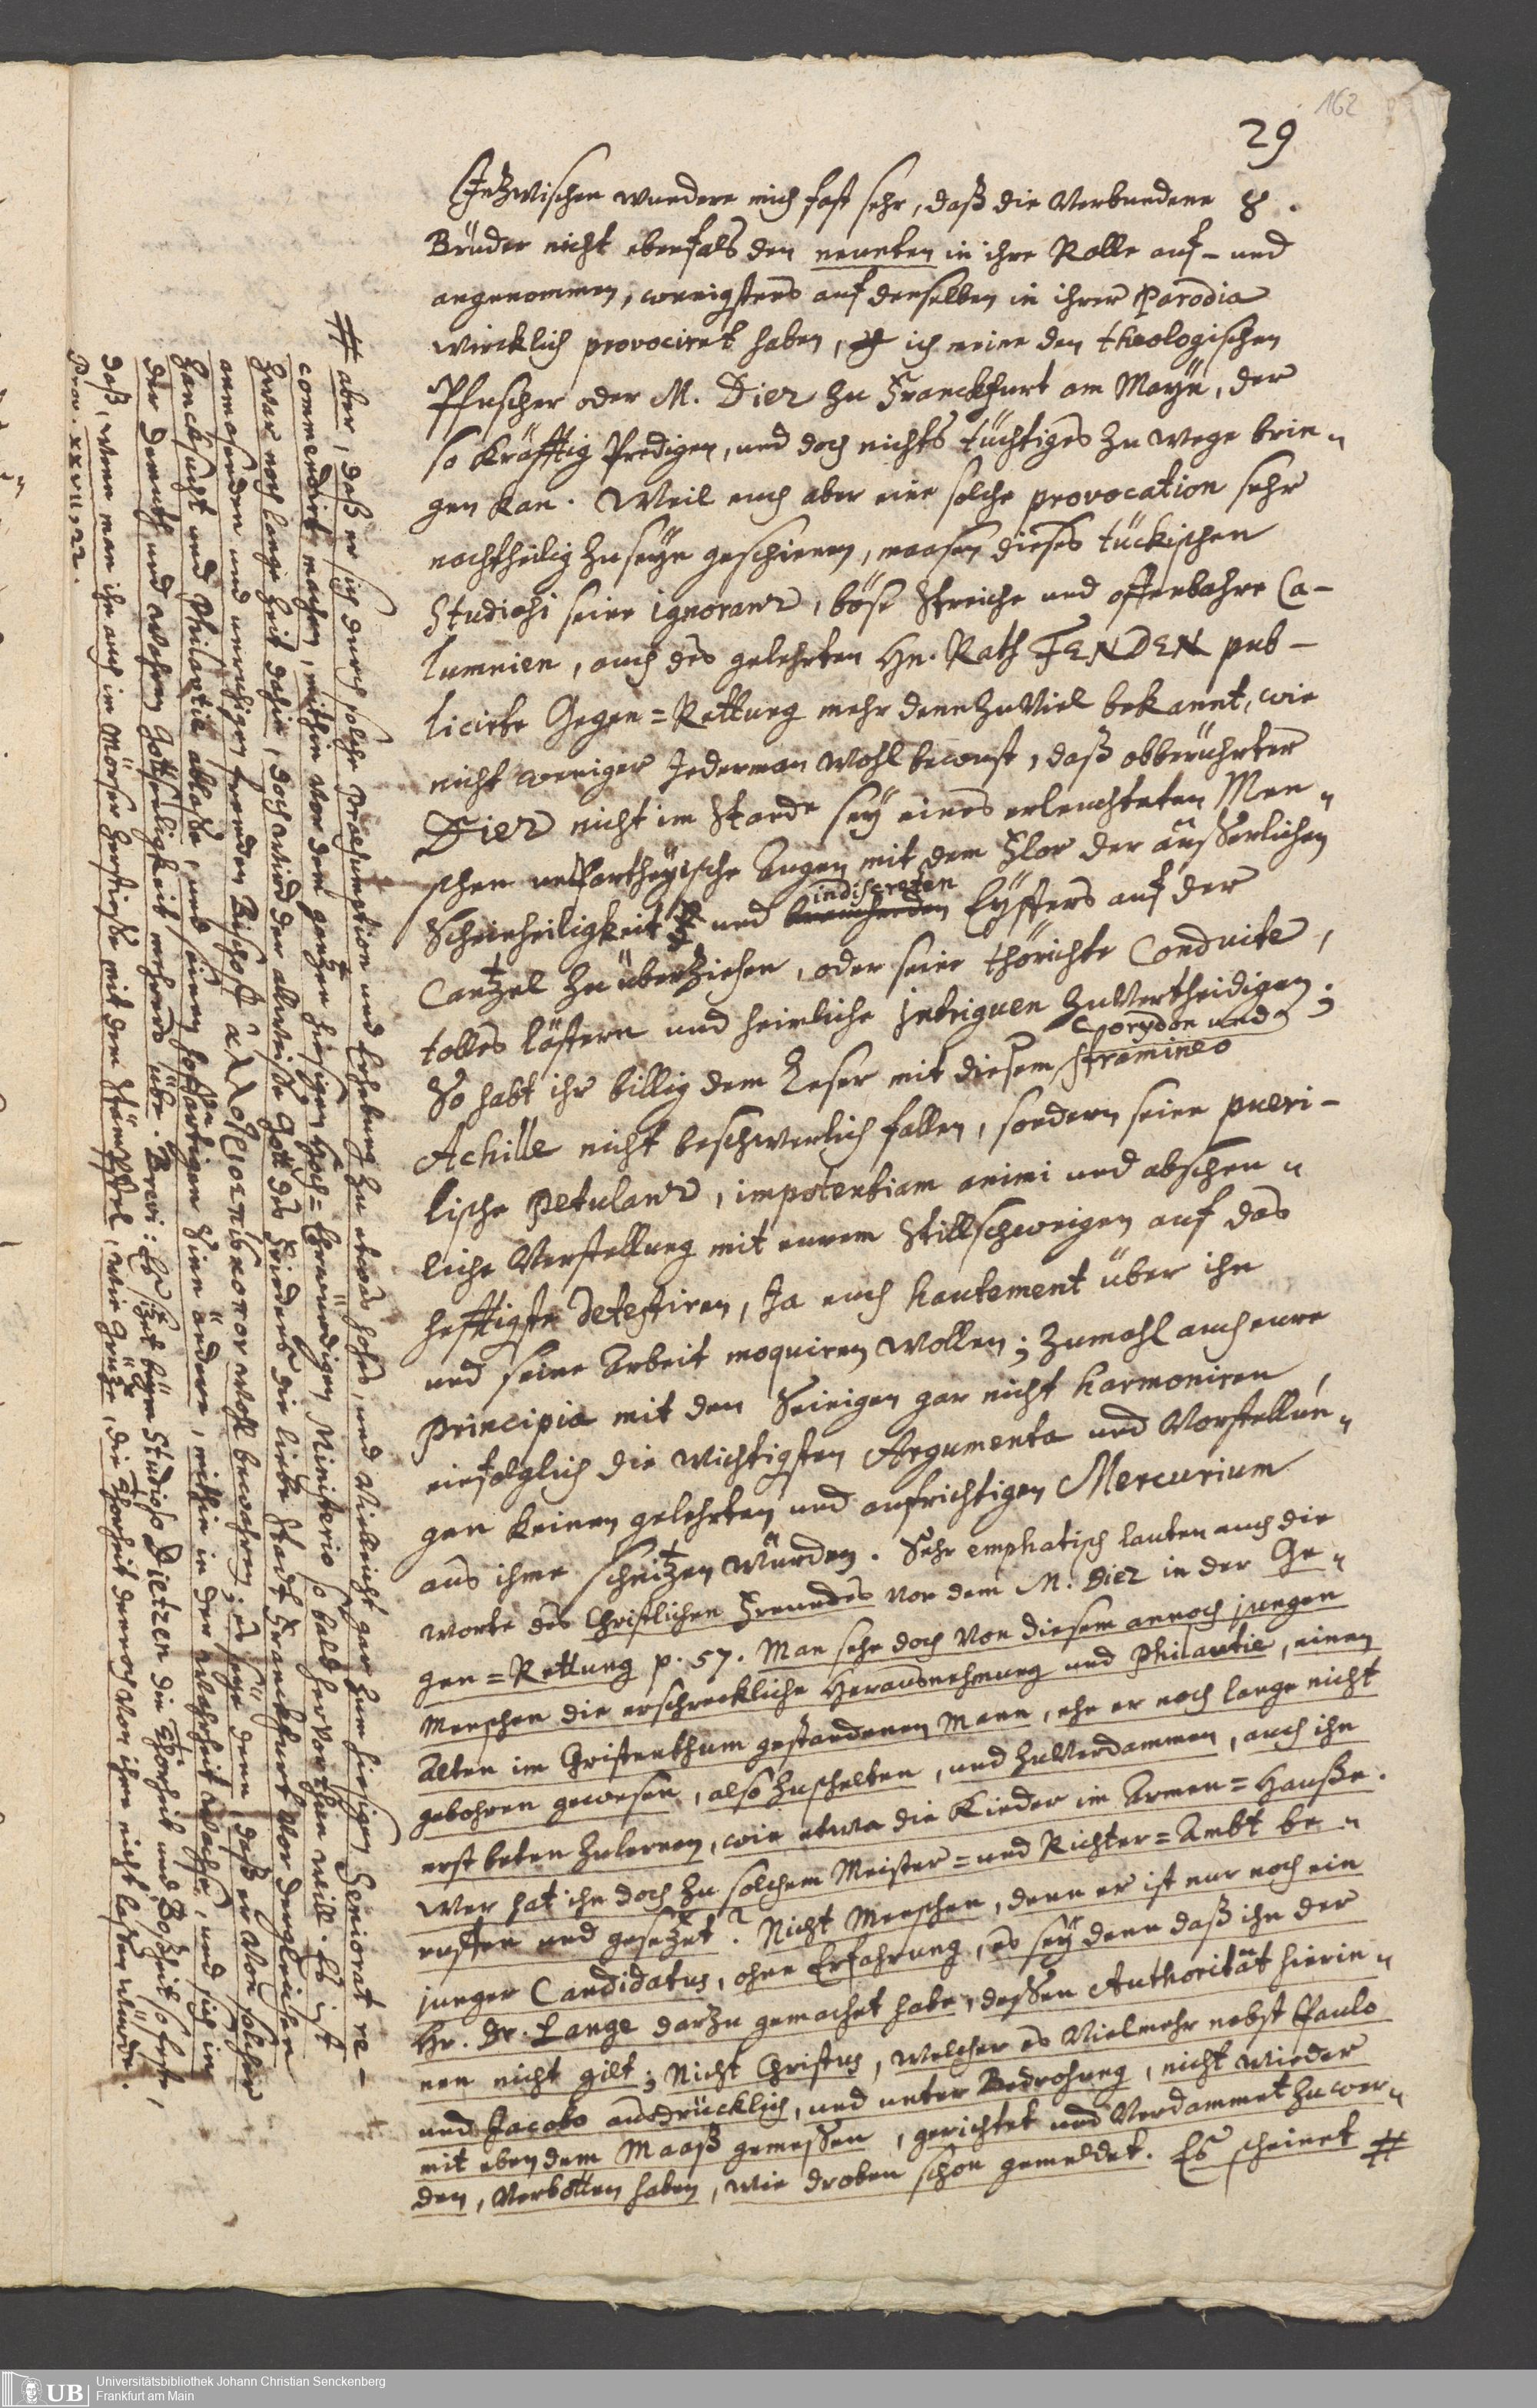 162
29
Inzwischen wundere mich fast sehr, daß die Verbundene 8.
Brüder nicht ebenfals den neunten in ihre Rolle auf- und
angenommen, wenigstens auf denselben in ihrer Parodia
wircklich provociret haben, ich meine den theologischen
Pfuscher oder M. Diez zu Franckfurt am Mayn, der
so kräfftig Predigen, und doch nichts tüchtiges zu wege brin-
gen kan. Weil euch aber eine solche provocation sehr
nachtheilig zu seyn geschienen, maasen dieses tückischen
Studiosi seine ignoranz, böse Streiche und offenbahre Ca-
lumnien, auch des gelehrten Hn. Rath FENDEN pub-
licirte Gegen=Rettung mehr denn zu Viel bekannt, wie
nicht weniger Jederman wohl bewust, daß obberührter
Diez nicht im Stande sey eines erleuchteten Men-
schen unPartheyische Augen mit dem Flor der äusserlichen
Scheinheiligkeit und indiscreten Eyffers auf der
Cantzel zu überziehen, oder seine thörichte Conduite,
tolles lästern und heimliche intriguen zuVertheidigen;
So habt ihr billig dem Leser mit diesem Corydon und stramineo
Achille nicht beschwerlich fallen, sondern seine pueri-
lische Petulanz, impotentiam animi und abscheu-
liche Verstellung mit eurem Stillschweigen auf das
hefftigste detestiren, Ja euch hautement über ihn
und seine Arbeit moquiren wollen; Zumahl auch eure
Principia mit den Seinigen gar nicht harmoniren,
einfolglich die wichtigsten Argumenta und Vorstellun-
gen keinen gelehrten und aufrichtigen Mercurium
aus ihme schnitzen würden. Sehr emphatisch lauten auch die
worte des Christlichen Freundes von dem M. Diez in der Ge-
gen=Rettung p. 57. Man sehe doch Von diesem annoch jungen
Menschen die erschreckliche Herausnehmung und Philautie, einen
Alten im Christenthum gestandenen Mann, ehe er noch lange nicht
gebohren gewesen, also zuschelten, und zuVerdammen, auch ihn
erst beten zulernen, wie etwa die Kinder im Armen=Hauße.
Wer hat ihn doch zu solchem Meister= und Richter=Ambt be-
ruffen und gesetzet? Nicht Menschen, denn er ist nur noch ein
junger Candidatus, ohne Erfahrung, es sey denn daß ihn der
Hr. Dr. Lange darzu gemachet habe, dessen Authorität hierin-
nen nicht gilt; Nicht Christus, welcher es Vielmehr nebst Paulo
und Jacobo ausdrücklich, und unter Bedrohung, nicht wieder
mit eben dem Maaß gemessen, gerichtet und Verdammet zu wer-
den, Verbotten haben, wie droben schon gemeldet. Es scheinet #
# aber, daß er sich durch solche Praesumption und Erhebung zu etwas hohes, und Vielleicht gar zum hiesigen Seniorat re-
commendirt machen, mithin Vor dem gantzen hiesigen Hoch=Ehrwürdigen Ministerio so bald herVor thun will. Es ist
zwar noch lange Zeit dahin, doch wird der allweise Gott des Friedens die liebe Stadt Franckfurt Vor dergleichen
anmasenden und unruhigen fremden Bischoff ἀλλοτριοεπίσκοπον wohl bewahren; es seye denn, daß er Von solcher
Zancksucht und Philavtie ablaße, und seinen hoffärtigen Sinn ändere, mithin in der Wahrheit wachse, und sich in
der Demuth und wahren Gottseeligkeit mehrers übe. Brevi: Es sizet beym Studioso Dietzen die Thorheit und Boßheit so feste,
daß, wenn man ihn auch im Mörser zerstieße mit dem Stämpffel, wie Grütze, die Thorheit dennoch von ihm nicht lassen würde.
Prov. XXVII, 22.
Universitätsbibliothek Johann Christian Senckenberg
Frankfurt am Main
UB